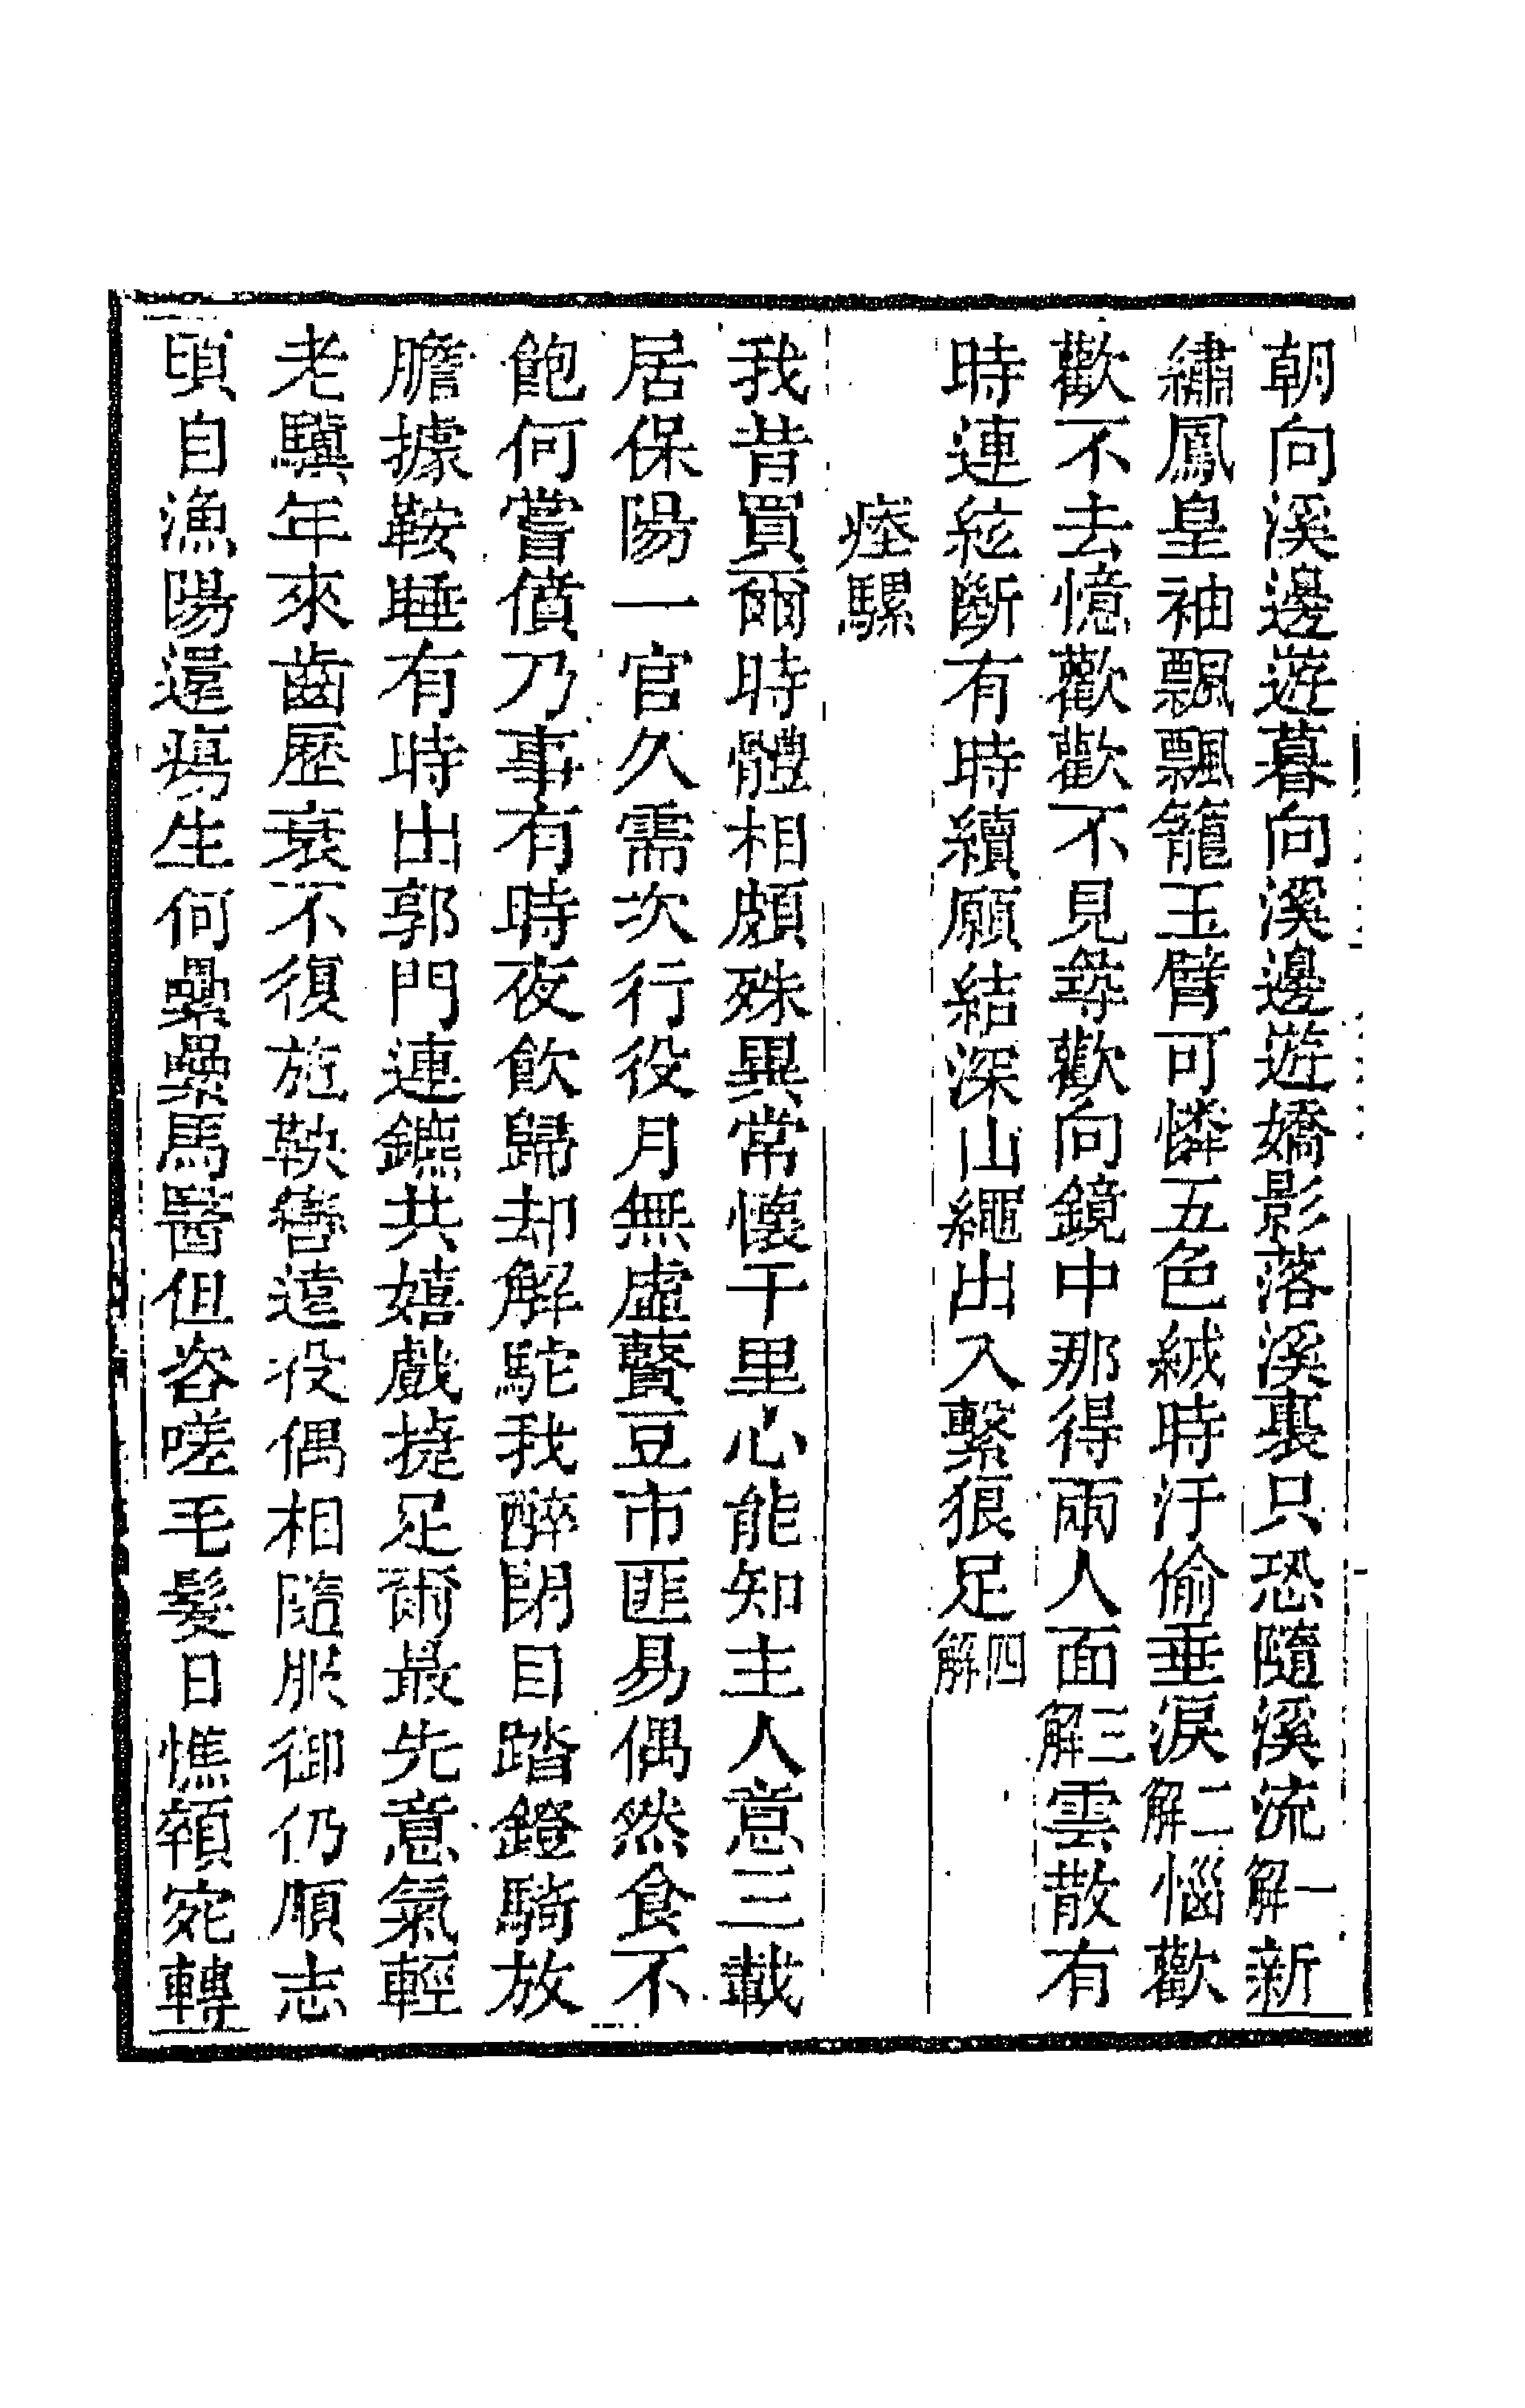 朝向溪邊遊暮向溪邊遊嬌影落溪裏只恐隨溪流一解新
繡鳳皇袖飄飄籠玉臂可憐五色絨時汙偷垂淚二解惱歡
歡不去憶歡歡不見尋歡向鏡中那得兩人面三解雲散有
時連絃斷有時續願結深山繩出入繫狼足四解
瘞騾
我昔買爾時體相頗殊異常懷千里心能知主人意三載
居保陽一官久需次行役月無虛虀豆市匪易偶然食不
飽何嘗僨乃事有時夜飲歸却解駝我醉閉目踏鐙騎放
膽據鞍睡有時出郭門連鑣共嬉戲捷足爾最先意氣輕
老驥年來齒歷衰不復施鞅轡遠役偶相隨服御仍順志
頃自漁陽還瘍生何纍纍馬醫但咨嗟毛髮日憔顇宛轉